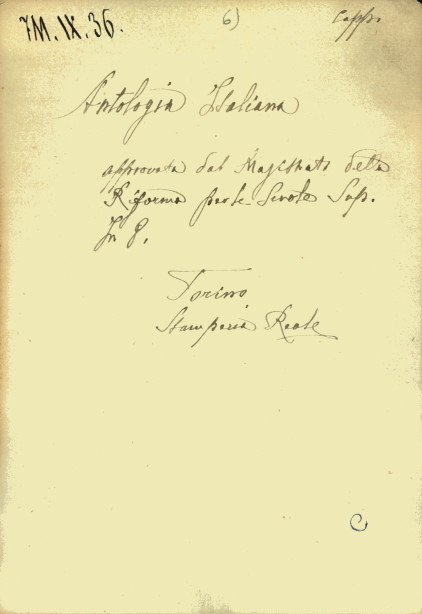 7M.IX.36.
6)
Antologia Italiana
approvata dal Magistrato della
Riforma per le Scuole Sup.
In 8.
Torino
Stamperia Reale
C